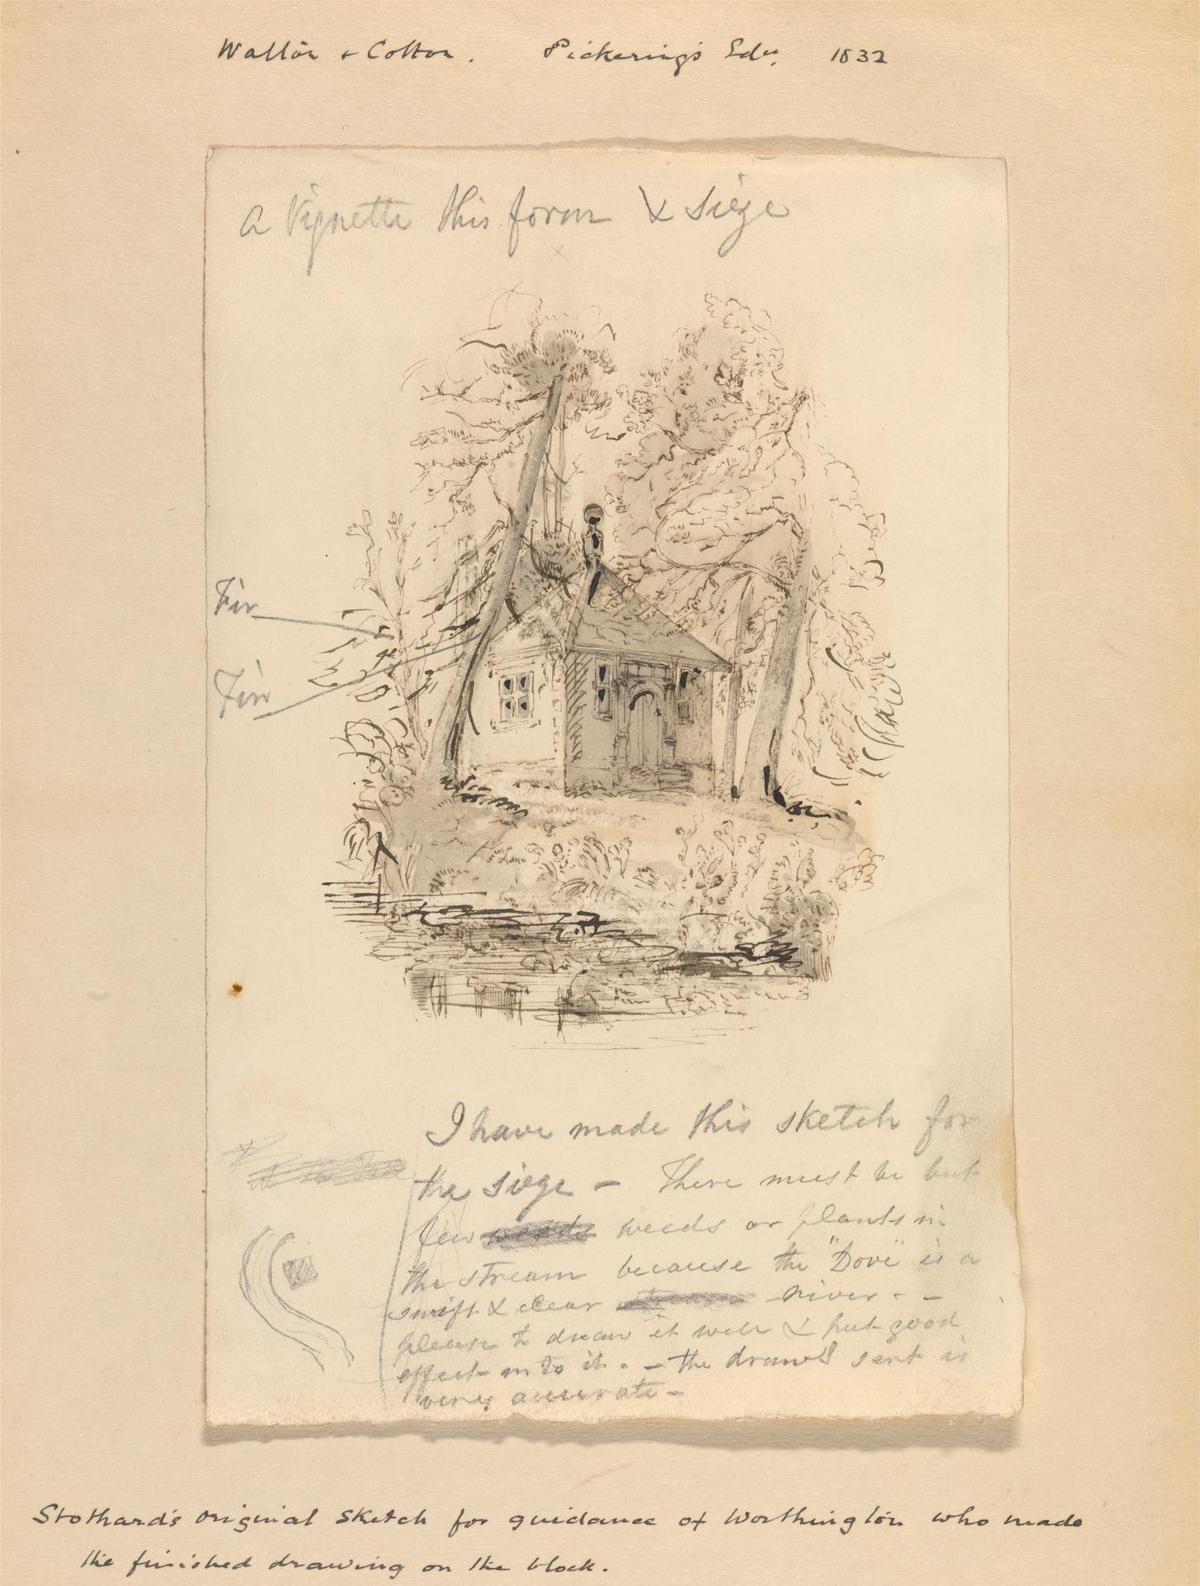 Walton & Cotton. Pickering's Edn. 1832
a Vignette this form & siege
Fir
Firr
I have made this sketch for
the siege – There must be but
few weeds or plants in
the stream because the "Dove" is a
swift & clear river. –
please to draw it well & put good
effect into it. – the draw.g sent is
very accurate –
Stothard's original sketch for guidance of Worthington who made
the finished drawing on the block.